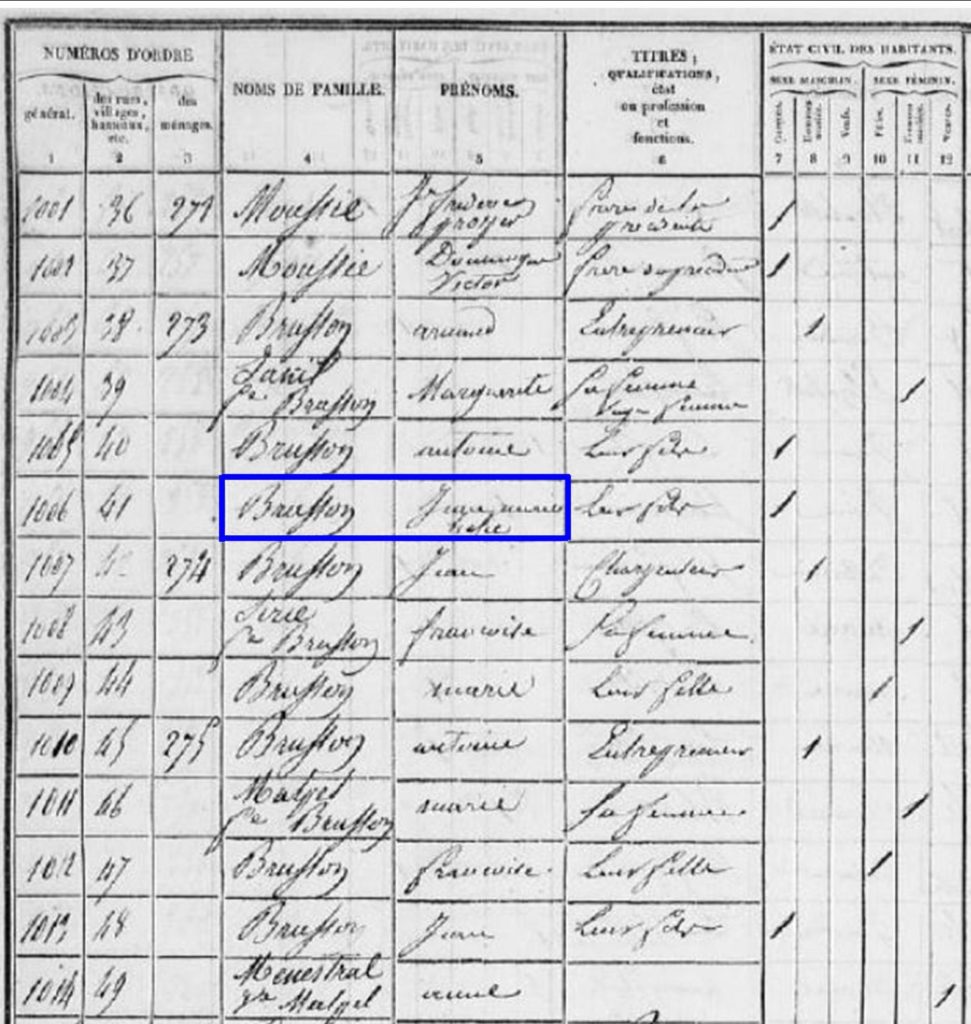 NUMÉROS D'ORDRE
général.
des rues, villages, hameaux, etc.
des ménages.
NOMS DE FAMILLE.
PRÉNOMS.
TITRES,
QUALIFICATIONS,
état
ou profession
et
fonctions.
ÉTAT CIVIL DES HABITANTS.
SEXE MASCULIN. SEXE FÉMININ.
Garçons. Hommes mariés. Veufs. Filles. Femmes mariées. Veuves.
1 2 3 4 5 6 7 8 9 10 11 12
1001 36 Moussié frère de la 1
37 Moussié Dominique Victor frère 1
38 273 Brusson armand Entrepreneur 1
1004 39 fe Brusson Marguerite Sa femme sage femme 1
1005 40 Brusson antoine Leur fils 1
1006 41 Brusson Jean marie Leur fils 1
1007 274 Brusson Jean Charpentier 1
1008 43 fe Brusson francoise Sa femme 1
1009 44 Brusson marie Leur fille 1
1010 45 275 Brusson antoine Entrepreneur 1
1011 46 Matget fe Brusson marie Sa femme 1
1012 47 Brusson francoise Leur fille 1
1013 48 Brusson Jean Leur fils 1
1014 49 Menestral ve Matget anne 1